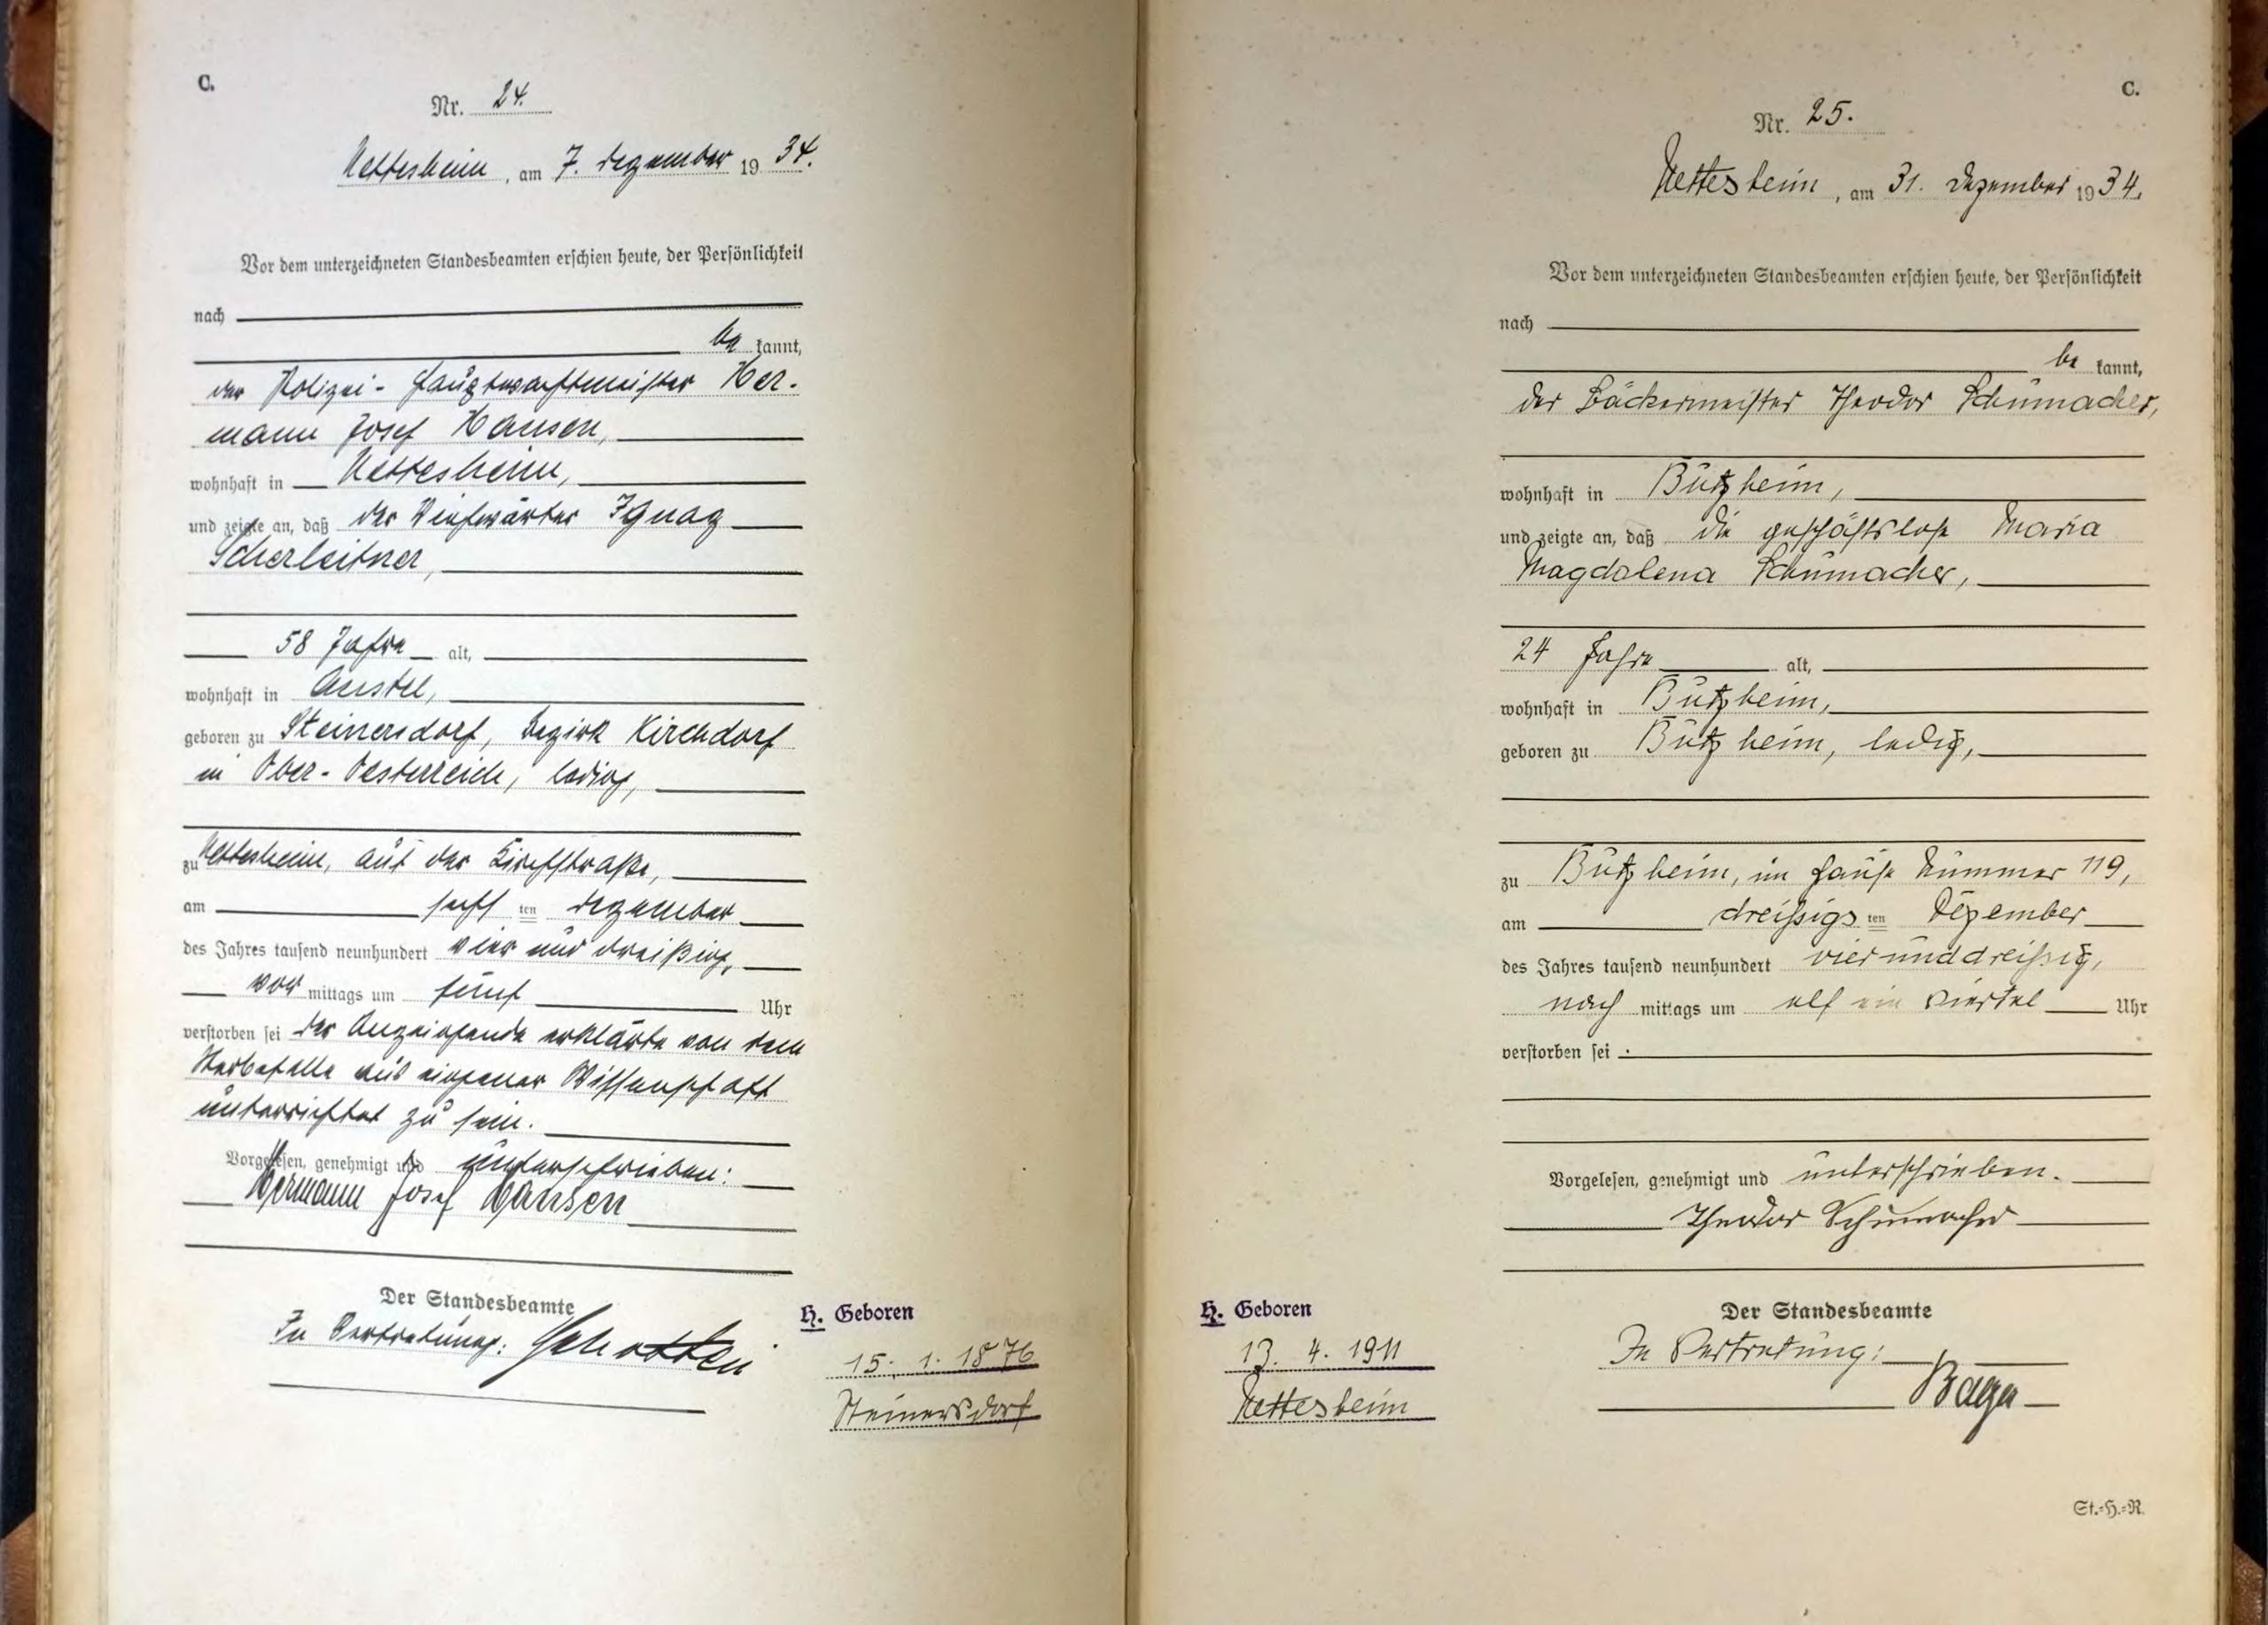 C.
Nr. 24.
Nettesheim, am 7. Dezember 1934.
Vor dem unterzeichneten Standesbeamten erschien heute, der Persönlichkeit
nach
be kannt,
der Polizei-Hauptwachtmeister Her-
mann Josef Hansen,
wohnhaft in Nettesheim,
und zeigte an, daß der Viehwärter Ignaz
Scherleitner,
58 Jahre alt,
wohnhaft in Anstel,
geboren zu Steinersdorf, Bezirk Kirchdorf
in Ober-Oesterreich, ledig,
zu Nettesheim, auf der Kirchstraße,
am sechs ten Dezember
des Jahres tausend neunhundert vier und dreißig,
vor mittags um fünf Uhr
verstorben sei der Anzeigende erklärte von dem
Sterbefalle aus eigener Wissenschaft
unterrichtet zu sein.
Vorgelesen, genehmigt und unterschrieben:
Hermann Josef Hansen
Der Standesbeamte
In Vertretung: Schotten
H. Geboren
15. 1. 1876
Steinersdorf
C.
Nr. 25.
Nettesheim, am 31. Dezember 1934.
Vor dem unterzeichneten Standesbeamten erschien heute, der Persönlichkeit
nach
be kannt,
der Bäckermeister Theodor Schumacher,
wohnhaft in Butzheim,
und zeigte an, daß die geschäftslose Maria
Magdalena Schumacher,
24 Jahre alt,
wohnhaft in Butzheim,
geboren zu Butzheim, ledig,
zu Butzheim, im Hause Nummer 119,
am dreissigs ten Dezember
des Jahres tausend neunhundert vierunddreissig,
nach mittags um elf ein viertel Uhr
verstorben sei.
Vorgelesen, genehmigt und unterschrieben.
Theodor Schumacher
Der Standesbeamte
In Vertretung:
H. Geboren
13. 4. 1911
Nettesheim
St.-H.-R.